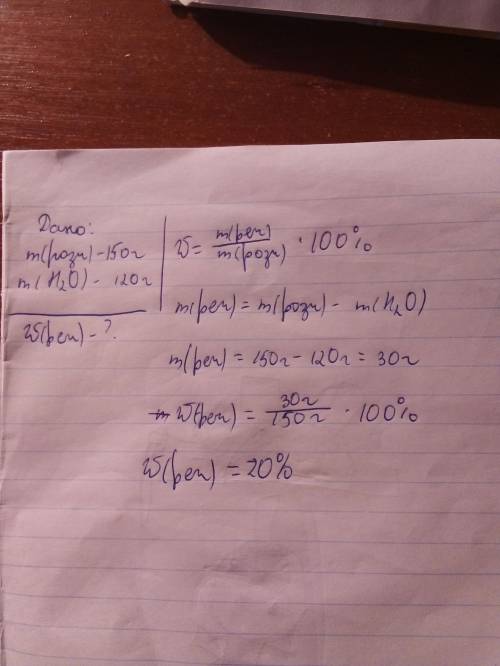 Дано:
m(розч) - 150г
m(H₂O) - 120г
W(реч) - ?
W = m(реч) / m(розч) · 100%
m(реч) = m(розч) - m(H₂O)
m(реч) = 150г - 120г = 30г
W(реч) = 30г / 150г · 100%
W(реч) = 20%